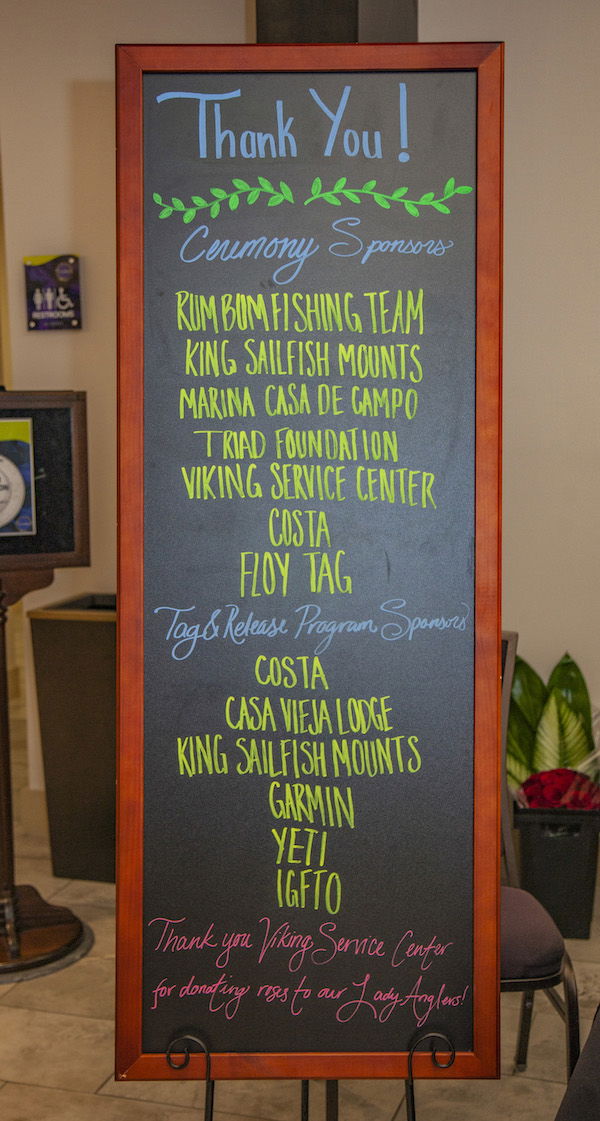 Thank You!
Ceremony Sponsors
RUM BUM FISHING TEAM
KING SAILFISH MOUNTS
MARINA CASA DE CAMPO
TRIAD FOUNDATION
VIKING SERVICE CENTER
COSTA
FLOY TAG
Tag & Release Program Sponsors
COSTA
CASA VIEJA LODGE
KING SAILFISH MOUNTS
GARMIN
YETI
IGFTO
Thank you Viking Service Center
for donating roses to our Lady Anglers!
RESTROOMS